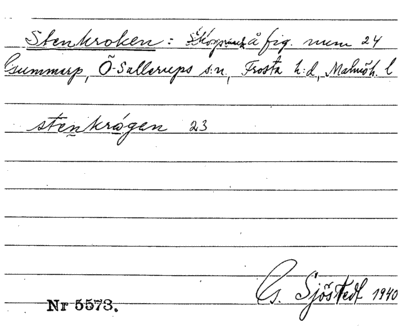 Stenkroken: å fig. num 24
Gummarp, Ö-Sallerups s:n, Frosta h:d, Malmöh. l
stenkrógen 23
Nr 5573.
G. Sjöstedt 1940